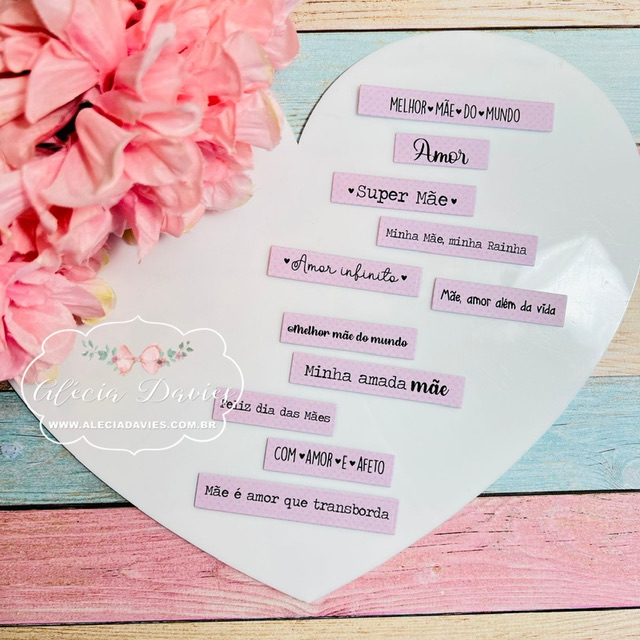 MELHOR♥MÃE♥DO♥MUNDO
Amor
♥Super Mãe♥
Minha Mãe, minha Rainha
♥Amor infinito♥
Mãe, amor além da vida
Melhor mãe do mundo
Minha amada mãe
Feliz dia das Mães
COM♥AMOR♥E♥AFETO
Mãe é amor que transborda
Alécia Davies
WWW.ALECIADAVIES.COM.BR